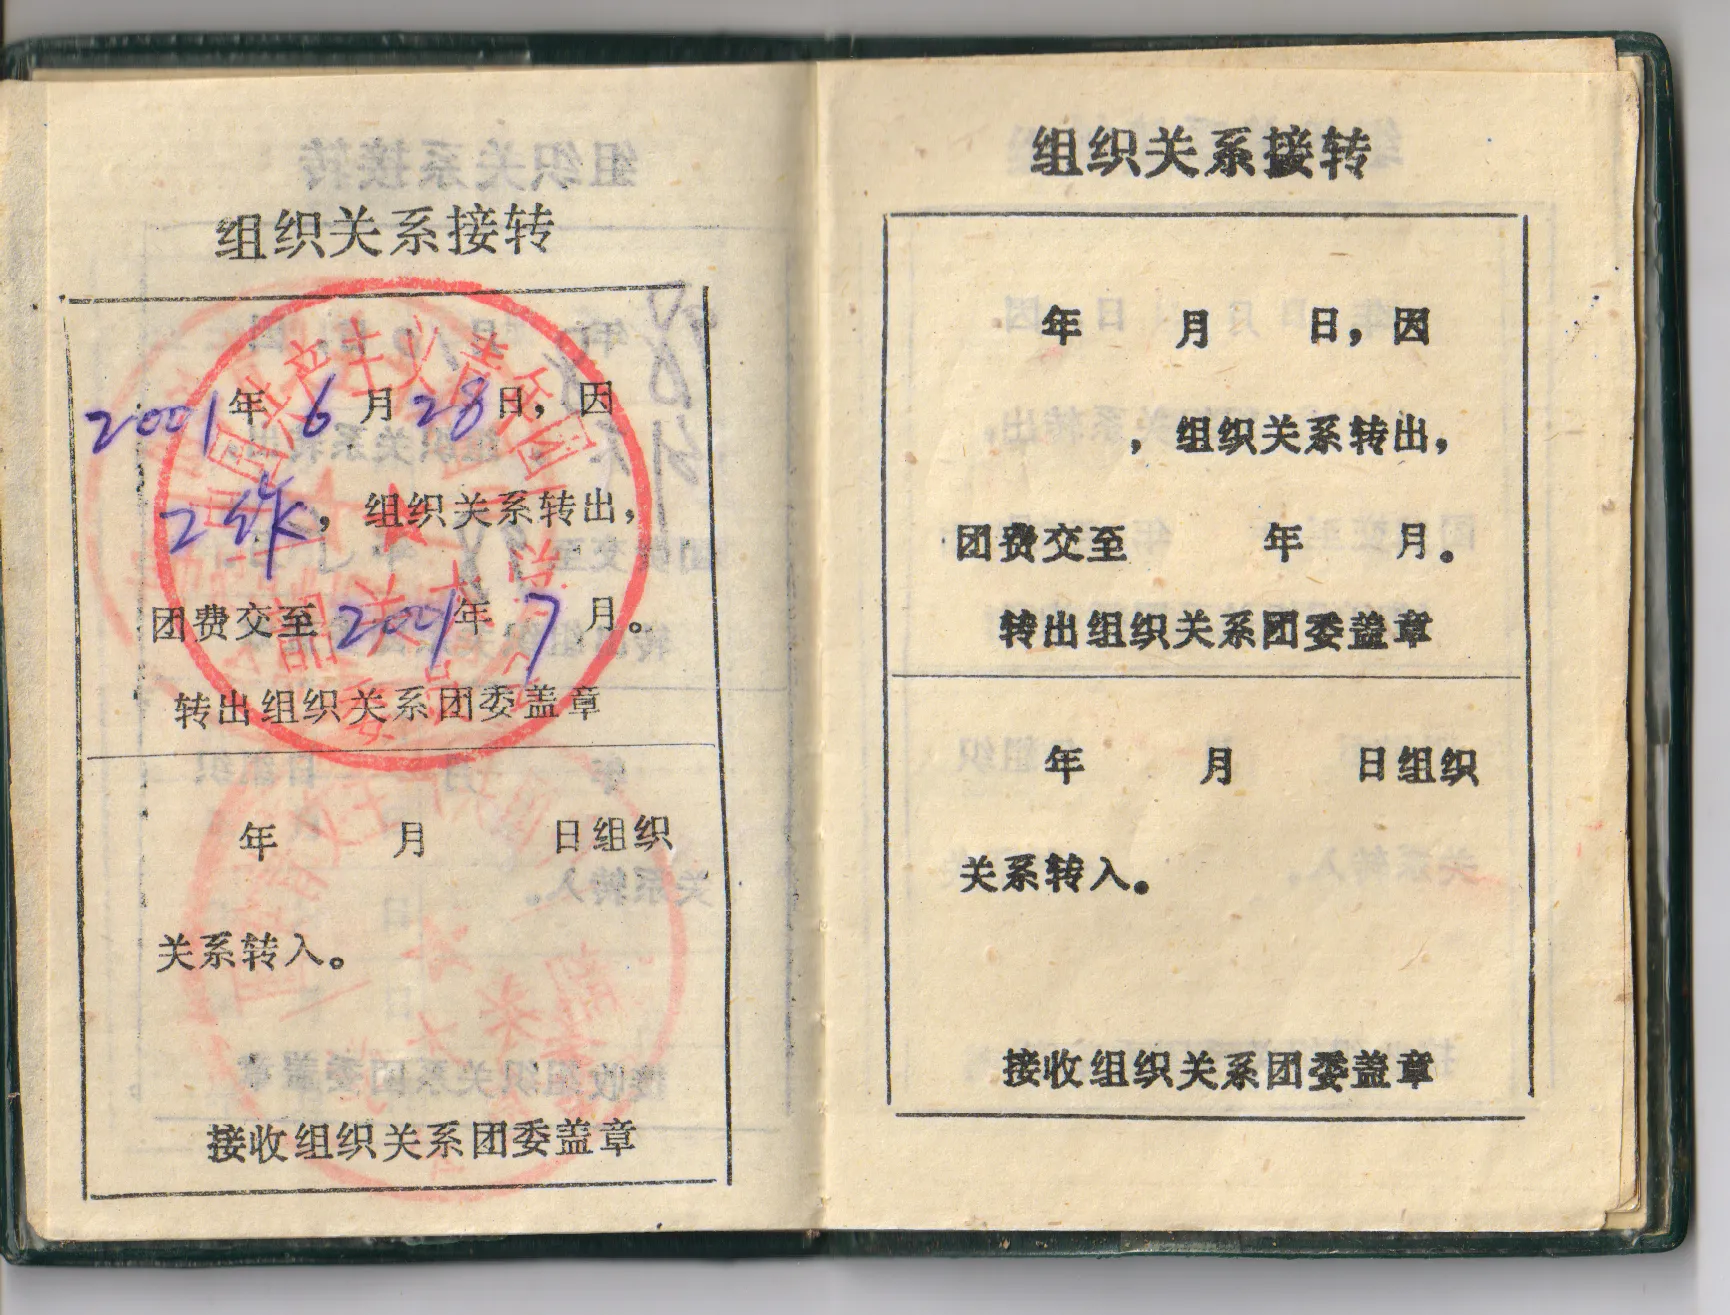 组织关系接转
2001年 6月 28日，因
工作，组织关系转出，
团费交至 2001年 7月。
转出组织关系团委盖章
年 月 日组织
关系转入。
接收组织关系团委盖章
组织关系接转
年 月 日，因
，组织关系转出，
团费交至 年 月。
转出组织关系团委盖章
年 月 日组织
关系转入。
接收组织关系团委盖章